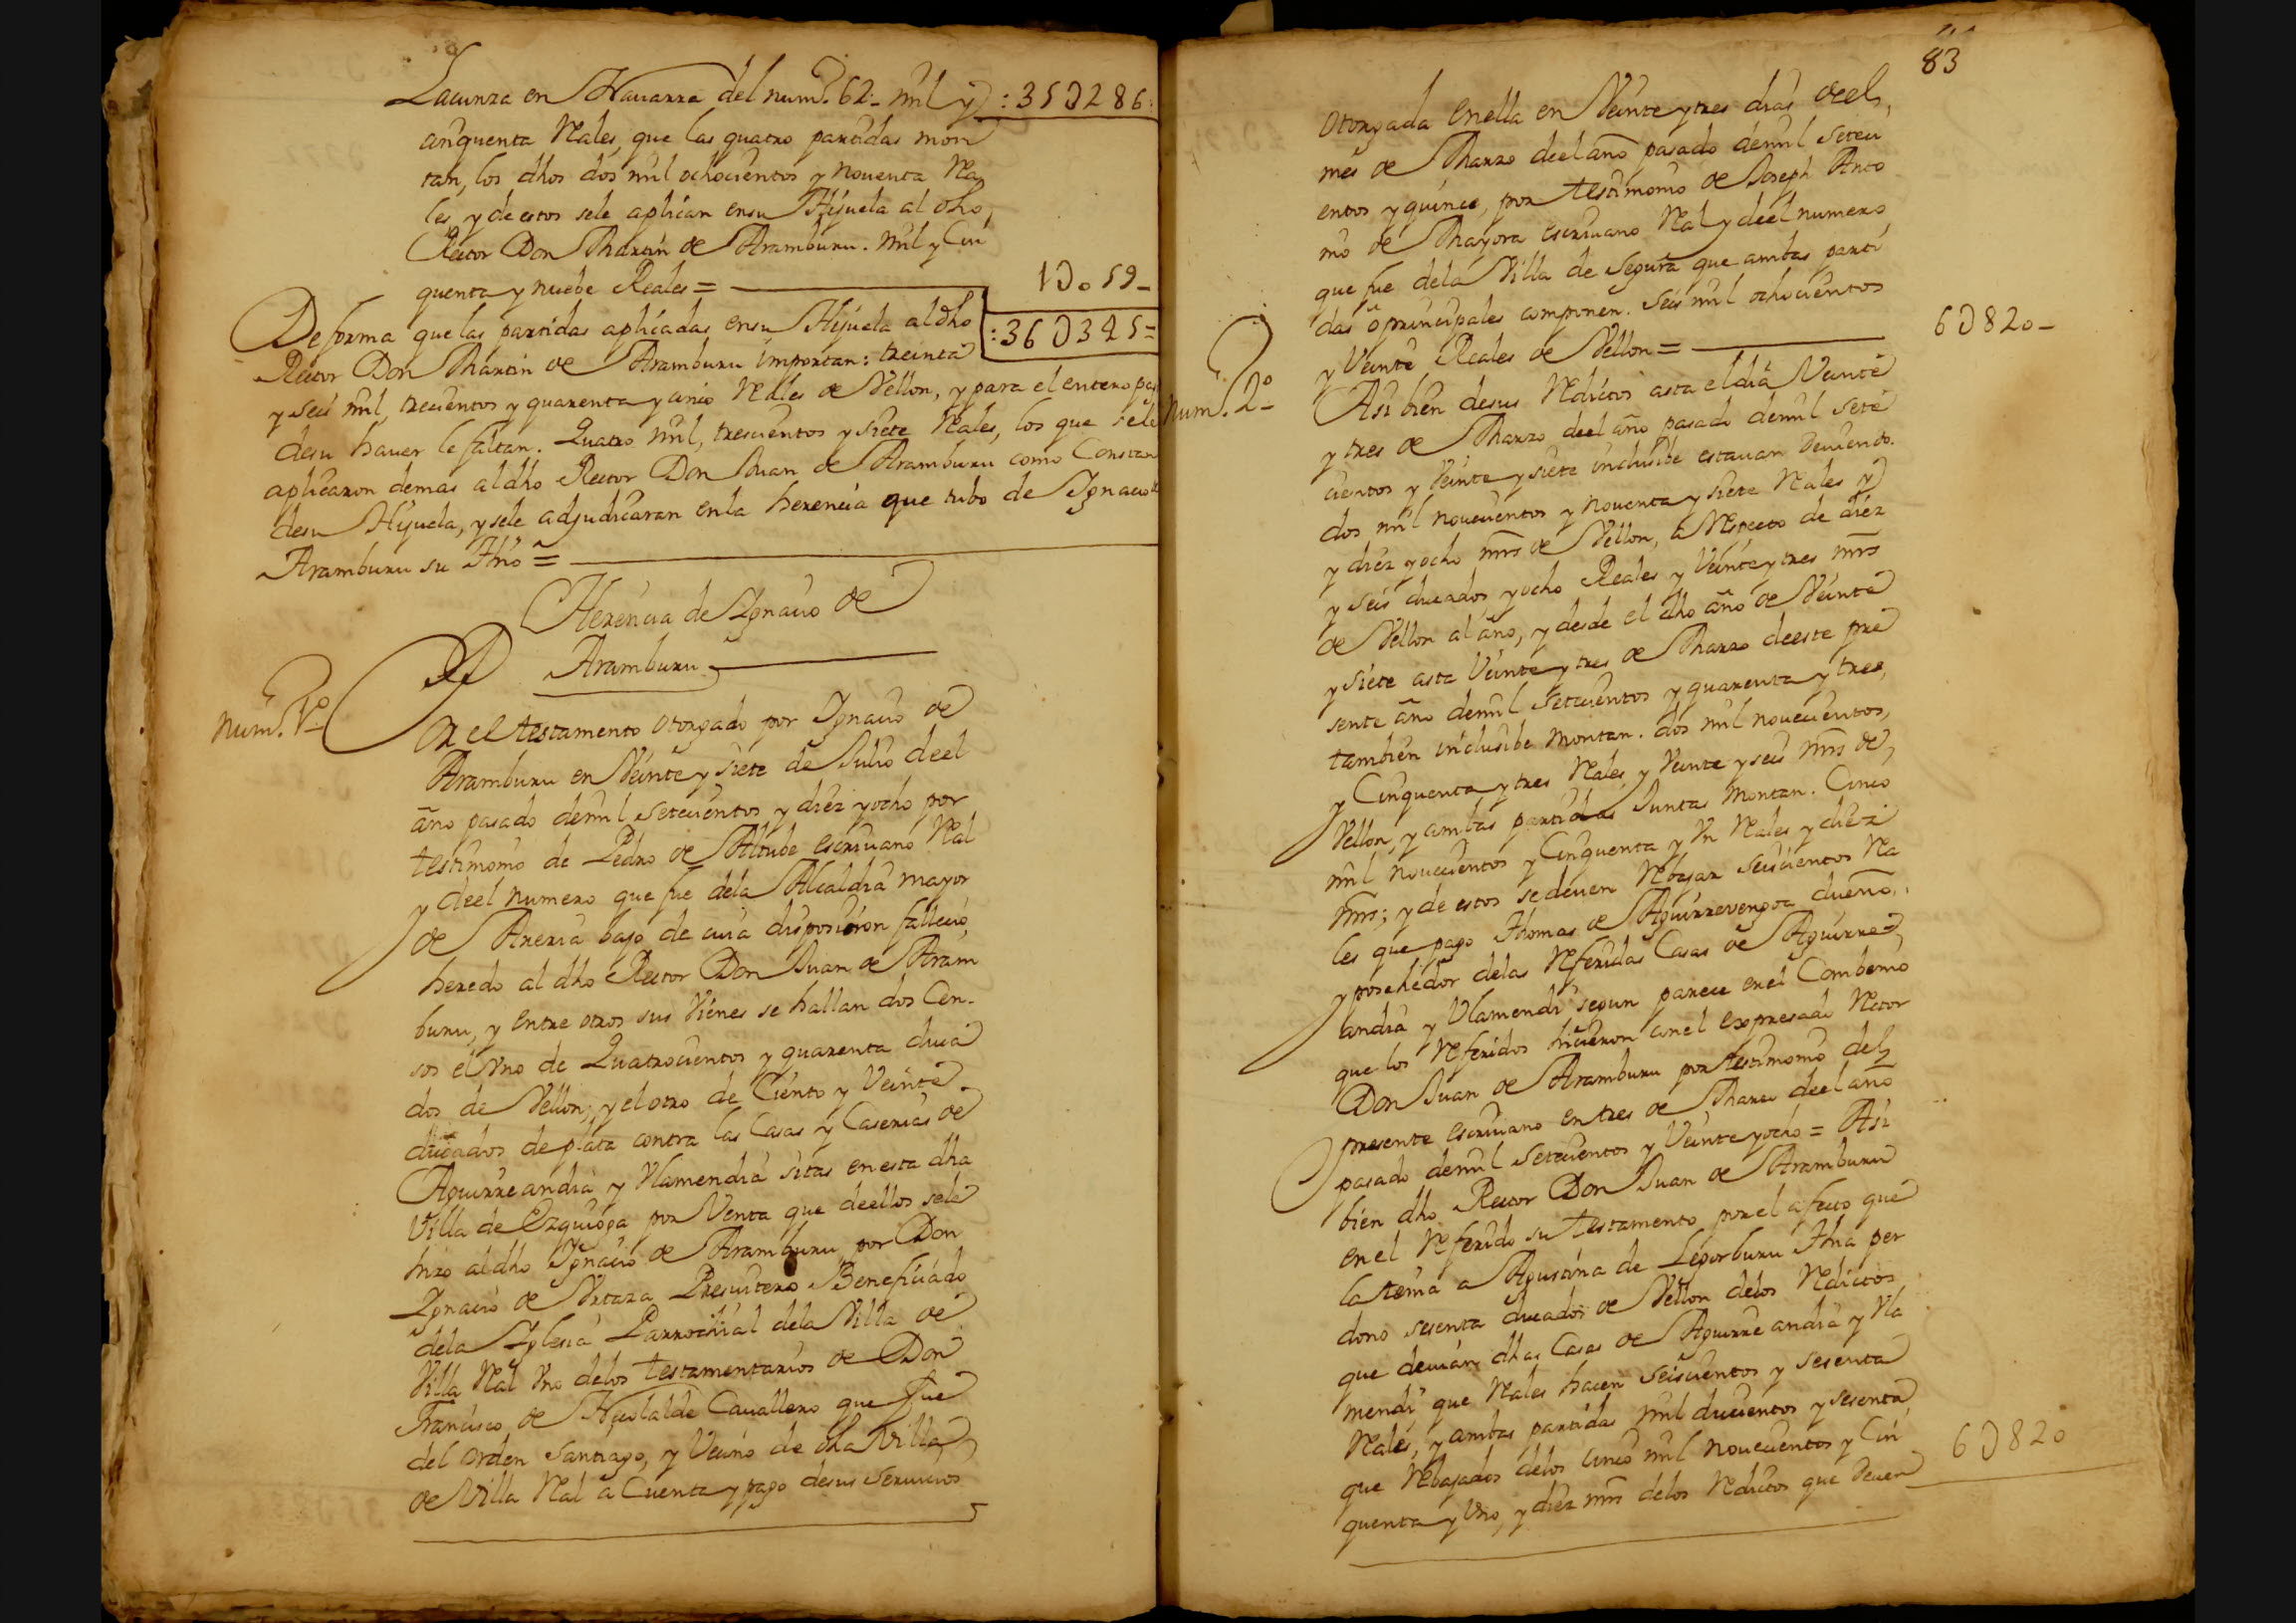 Lacunza en Navarra del num.º 62.- mil y :35U286.
cinquenta Rales, que las quatro partidas mon
tan, los dhos dos mil ochocientos y noventa Ra
les, y de estos sele aplican ensu Hijuela al dho,
Rector Don Martin de Aramburu. Mil y Cin
quenta y nuebe Reales = 1U059-
De forma que las partidas aplicadas ensu Hijuela al dho :36U345=
Rector Don Martin de Aramburu importan: treinta
y seis mil, trecientos y quarenta y cinco Rales de Vellon, y para el entero pag
desu hauer le faltan. Quatro mil, trescientos y siete Rales, los que sele
aplicaron demas al dho Rector Don Juan de Aramburu como Constan
desu Hijuela, y sele adjudicaran enla herencia que tubo de Ignacio
Aramburu su Thio =
Herencia de Ignacio de
Aramburu
Num.º 1º Por el testamento otorgado por Ignacio de
Aramburu en Veinte y siete de Julio deel
año pasado demil setecientos y diez y ocho por
testimonio de Pedro de Altube escriuano Ral
y deel numero que fue dela Alcaldia mayor
de Areria bajo de cuia disposicion fallecio,
heredo al dho Rector Don Juan de Aram
buru, y entre otros sus Vienes se hallan dos Cen-
sos el Vno de Quatrocientos y quarenta duca
dos de Vellon, y el otro de Ciento y Veinte
ducados de plata contra las Casas y Caserias de
Aguirreandia y Vlamendia sitas en esta dha
Villa de Ezquioga por Venta que deellos sele
hizo al dho Ignacio de Aramburu por Don
Ignacio de Vrtaza Presuitero Beneficiado
dela Iglesia Parrochial dela Villa de
Villa Ral Vno delos testamentarios de Don
Francisco de Necolalde Cauallero que fue
del orden Santiago, y Vecino de dha Villa
de Villa Ral a Cuenta y pago desus seruicios
83
otorgada enella en Veinte y tres dias deel,
mes de Marzo deel año pasado demil seteci
entos y quince, por testimonio de Joseph Anto
nio de Mayora escriuano Ral y deel numero
que fue dela Villa de Segura que ambas parti
das o principales componen. Seis mil ochocientos
y Veinte Reales de Vellon = 6U820-
Num.º 2º- Asi bien desus Reditos asta el dia Veinte
y tres de Marzo deel año pasado demil sete
cientos y Veinte y siete inclusibe estauan deuiendo.
dos mil nouecientos y nouenta y siete Rales y
y diez y ocho mrs de Vellon, a Respecto de diez
y seis ducados y ocho Reales y Veinte y tres mrs
de Vellon al año, y desde el dho año de Veinte
y siete asta Veinte y tres de Marzo deeste pre
sente año demil setecientos y quarenta y tres,
tambien inclusibe montan. dos mil nouecientos,
y Cinquenta y tres Rales y Veinte y seis mrs de,
Vellon, y ambas partidas Juntas montan. Cinco
mil nouecientos y Cinquenta y Vn Rales y diez
mrs; y de estos se deuen Rebajar seiscientos Ra
les que pago Thomas de Aguirrevengoa dueño,
y posehedor delas Referidas Casas de Aguirre
andia y Vlamendi segun parece enel Combenio
que los Referidos hicieron conel expresado Rector
Don Juan de Aramburu por testimonio del
presente escriuano en tres de Marzo deel año
pasado demil setecientos y Veinte y ocho = Asi
bien dho Rector Don Juan de Aramburu
en el Referido su testamento por el afecto que
la tenia a Agustina de Legorburu Thia per
dono sesenta ducados de Vellon delos Reditos
que deuian dhas Casas de Aguirre andia y Vla
mendi que Rales hacen seiscientos y sesenta
Rales, y ambas partidas mil ducientos y sesenta,
que Rebajados delos cinco mil nouecientos y Cin
quenta y Vno, y diez mrs delos Reditos que deuen 6U820